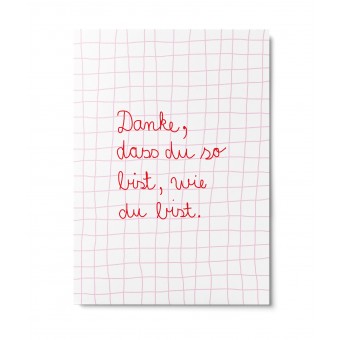 Danke,
dass du so
bist, wie
du bist.